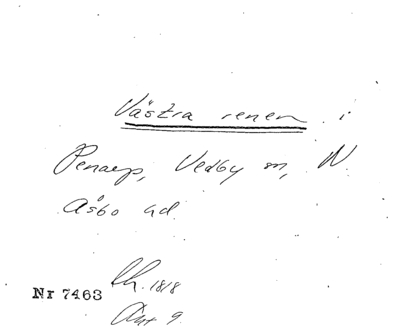 Västra renen i
Penarp, Vedby sn, N.
Åsbo hd.
Lh. 1818
Nr 7463
Akt 9